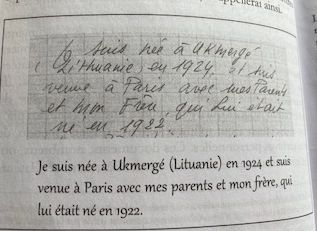 appellerai ainsi.
Je suis née à Ukmergé
(Lithuanie) en 1924, et suis
venue à Paris avec mes Parents
et mon Frère, qui Lui était
né en 1922.
Je suis née à Ukmergé (Lituanie) en 1924 et suis
venue à Paris avec mes parents et mon frère, qui
lui était né en 1922.